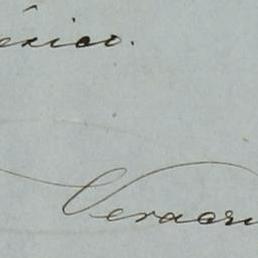 éxico.
Veracru